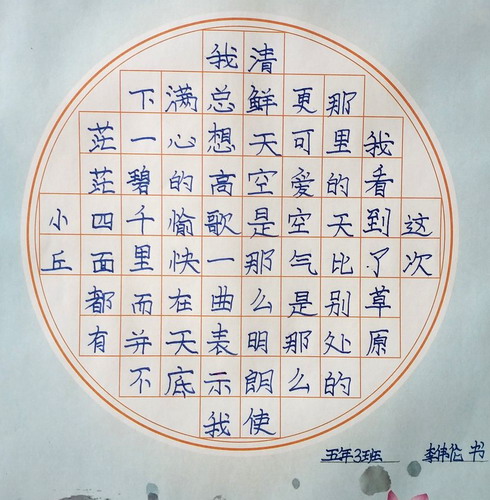 这次
我看到了草原
那里的天比别处的
更可爱空气是那么
清鲜天空是那么明朗使
我总想高歌一曲表示我
满心的愉快在天底
下一碧千里而并不
茫茫四面都有
小丘
五年3班 李伟伦 书